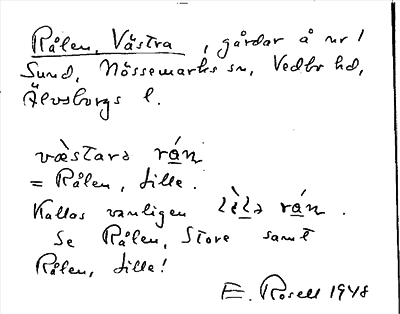 Rålen, Västra, gårdar å nr 1
Sund, Nössemarks sn, Vedbo hd,
Älvsborgs l.
væ̀starə rán
= Rålen, Lille.
Kallas vanligen lìlə rán.
Se Rålen, Store samt
Rålen, Lille!
E. Rosell 1948